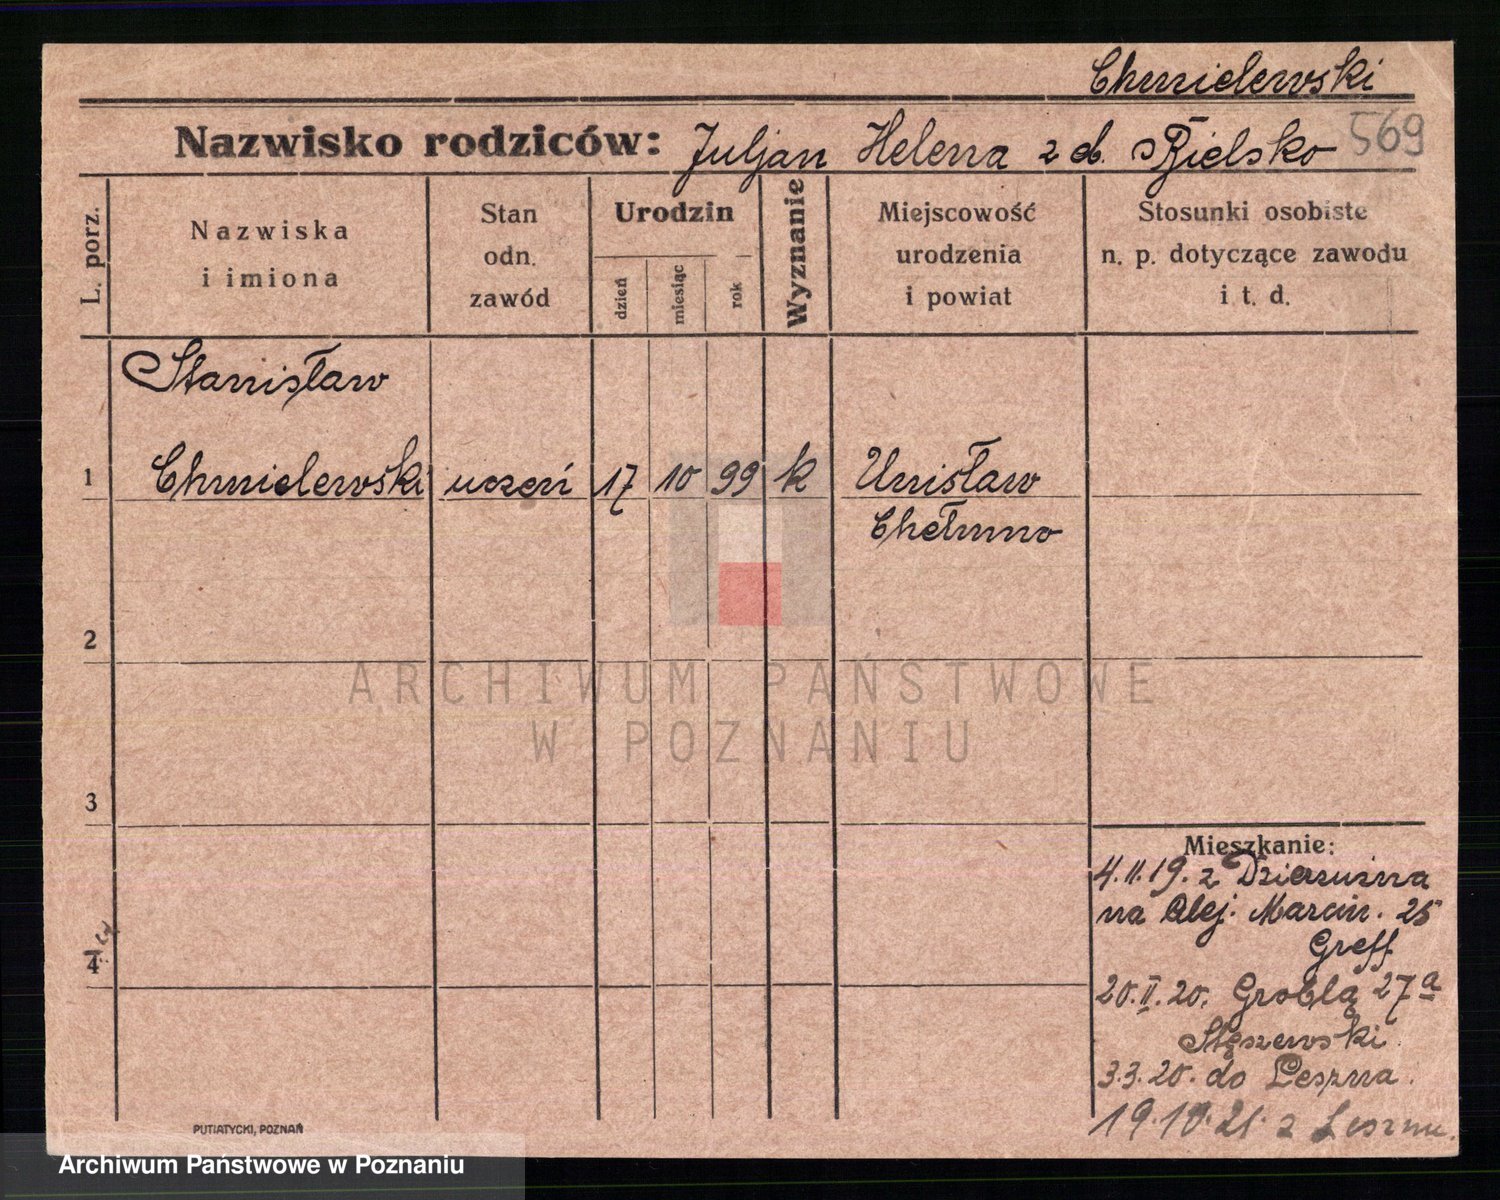 Chmielewski
Nazwisko rodziców: Juljan Helena z d. Bielsko 569
L. porz.
Nazwiska
i imiona
Stan
odn.
zawód
Urodzin
dzień
miesiąc
rok
Wyznanie
Miejscowość
urodzenia
i powiat
Stosunki osobiste
n. p. dotyczące zawodu
i t. d.
Stanisław
1 Chmielewski uczeń 17 10 99 k Unisław
Chełmno
2
3
4
Mieszkanie:
4.11.19. z
na Alej. Marcin. 25
Greff
20.II.20. Groblą 27a
Stęszewski
3.3.20. do Leszna.
19.10.21. z Leszna.
PUTIATYCKI, POZNAŃ
ARCHIWUM PAŃSTWOWE
W POZNANIU
Archiwum Państwowe w Poznaniu